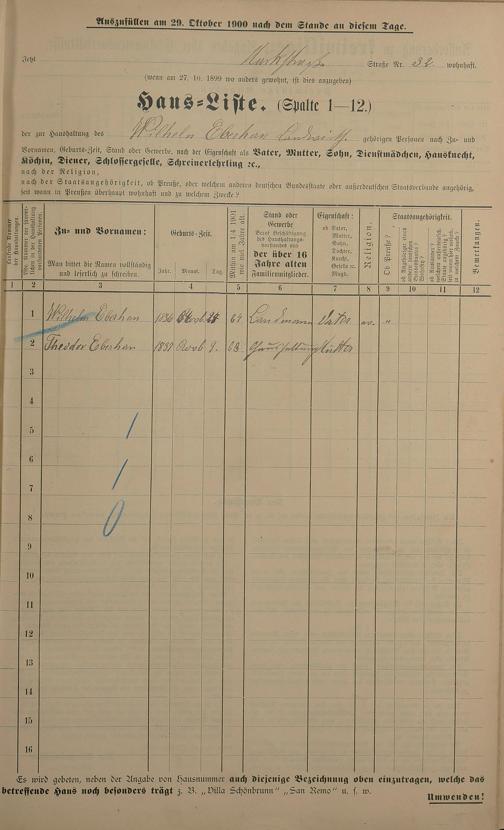 Auszufüllen am 29. Oktober 1900 nach dem Stande an diesem Tage.
Jetzt Straße Nr. 32 wohnhaft.
(wenn am 27. 10. 1899 wo anders gewohnt, ist dies anzugeben)
Haus=Liste. (Spalte 1—12.)
der zur Haushaltung des Wilhelm Eberhan gehörigen Personen nach Zu- und
Vornamen, Geburts-Zeit, Stand oder Gewerbe, nach der Eigenschaft als Vater, Mutter, Sohn, Dienstmädchen, Hausknecht,
Köchin, Diener, Schlossergeselle, Schreinerlehrling ꝛc.,
nach der Religion,
nach der Staatsangehörigkeit, ob Preuße, oder welchem anderen deutschen Bundesstaate oder außerdeutschen Staatsverbande angehörig,
seit wann in Preußen überhaupt wohnhaft und zu welchem Zwecke?
Zu- und Vornamen:
Man bittet die Namen vollständig
und leserlich zu schreiben.
Geburts-Zeit.
Jahr. Monat. Tag.
Mithin am 1.4. 1901
wie viel Jahre alt.
Stand oder
Gewerbe
der über 16
Jahre alten
Familienmitglieder.
Eigenschaft:
ob Vater,
Mutter,
Sohn,
Tochter,
Knecht,
Geselle ꝛc.
Magd.
Religion.
Staatsangehörigkeit.
Ob Preuße?
Bemerkungen.
1 2 3 4 5 6 7 8 9 10 11 12
1 Wilhelm Eberhan 1836 25 64 Landmann Vater ev. "
2 Theodor Eberhan 1837 9. 63 Haushaltung Mutter
3
4
5
6
7
8
9
10
11
12
13
14
15
16
Es wird gebeten, neben der Angabe von Hausnummer auch diejenige Bezeichnung oben einzutragen, welche das
betreffende Haus noch besonders trägt z. B. „Villa Schönbrunn" „San Remo" u. s. w.
Umwenden!